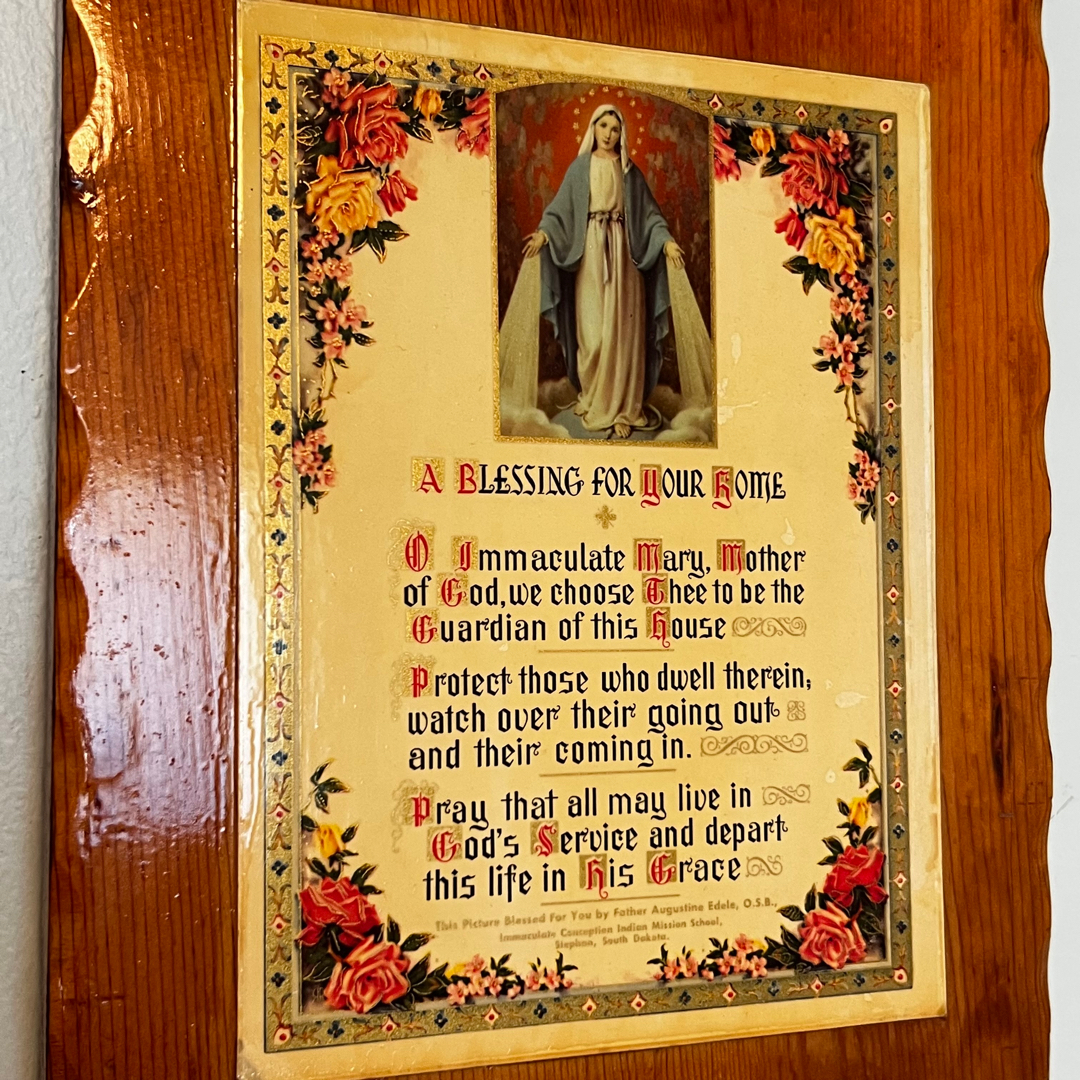 A Blessing for Your Home
O Immaculate Mary, Mother
of God, we choose Thee to be the
Guardian of this House
Protect those who dwell therein;
watch over their going out
and their coming in.
Pray that all may live in
God's Service and depart
this life in His Grace
This Picture Blessed For You by Father Augustine Edele, O.S.B.,
Immaculate Conception Indian Mission School,
Stephan, South Dakota.